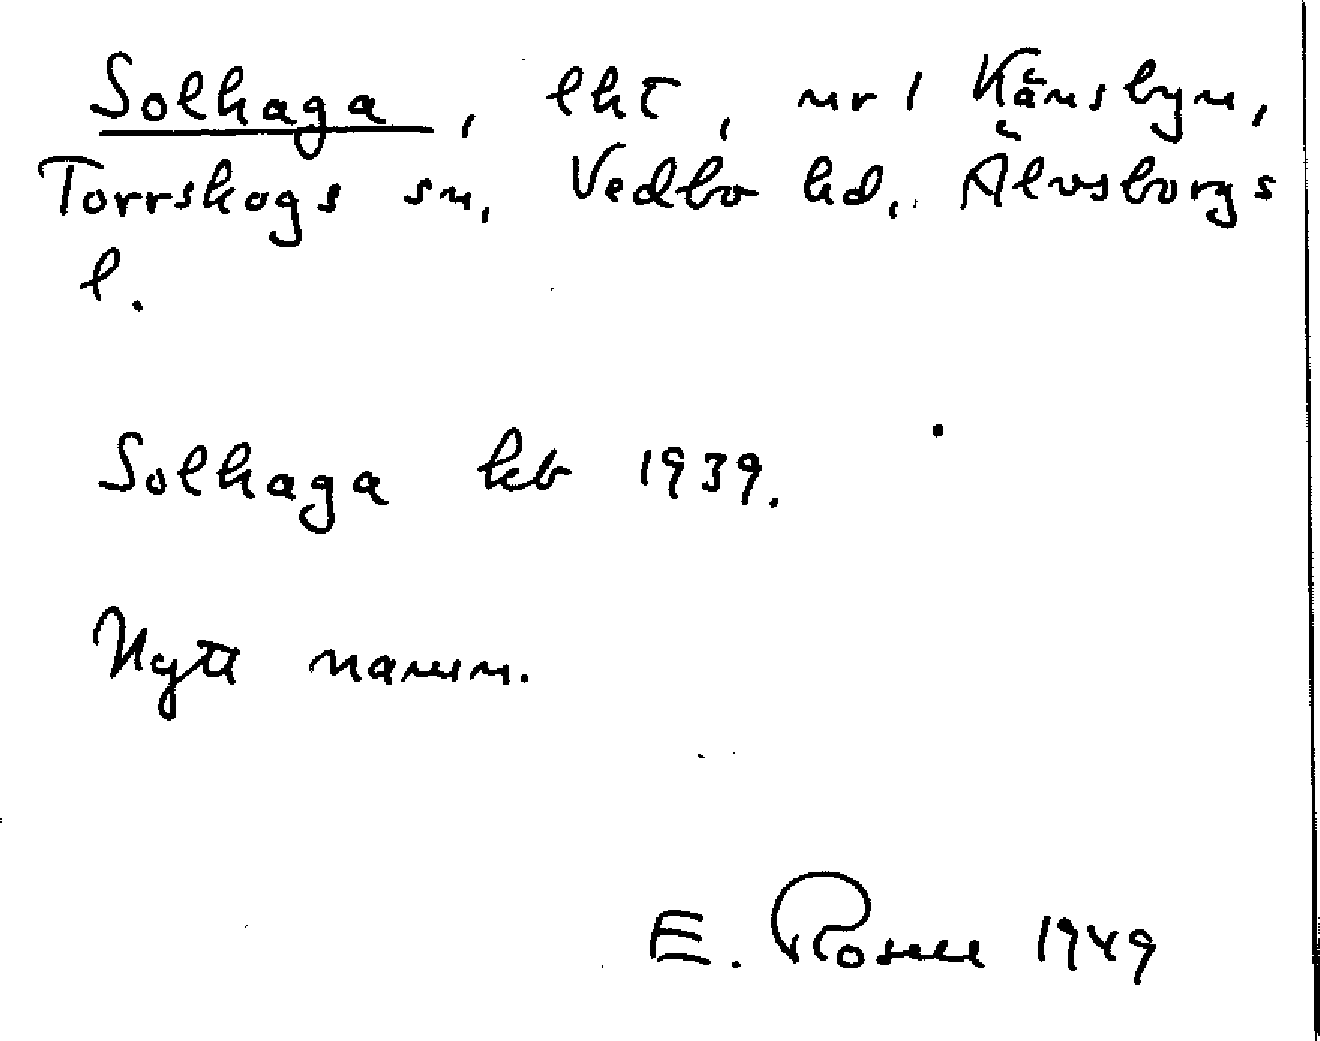 Solhaga, lht, nr 1 Känsbyn,
Torrskogs sn, Vedbo hd, Älvsborgs
l.
Solhaga kb 1939.
Nytt namn.
E. Rosell 1949